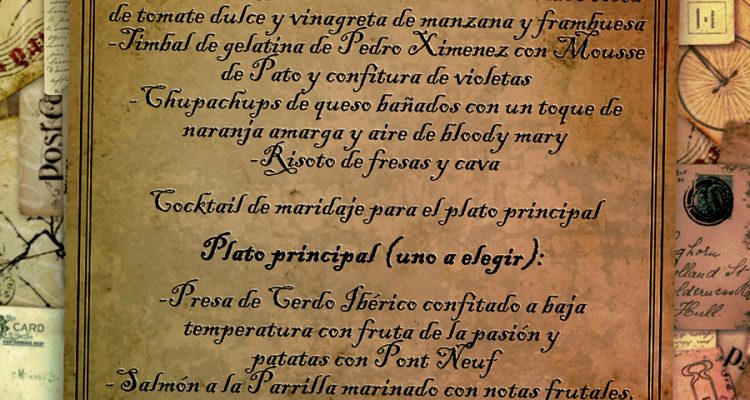 de tomate dulce y vinagreta de manzana y frambuesa
-Timbal de gelatina de Pedro Ximenez con Mousse
de Pato y confitura de violetas
-Chupachups de queso bañados con un toque de
naranja amarga y aire de bloody mary
-Risoto de fresas y cava
Cocktail de maridaje para el plato principal
Plato principal (uno a elegir):
-Presa de Cerdo Ibérico confitado a baja
temperatura con fruta de la pasión y
patatas con Pont Neuf
-Salmón a la Parrilla marinado con notas frutales,
CARD
Hull